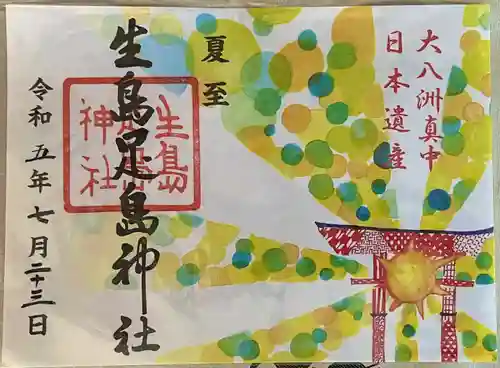 大八洲真中
日本遺産
夏至
生島足島神社
生島
足島
神社
令和五年七月二十三日